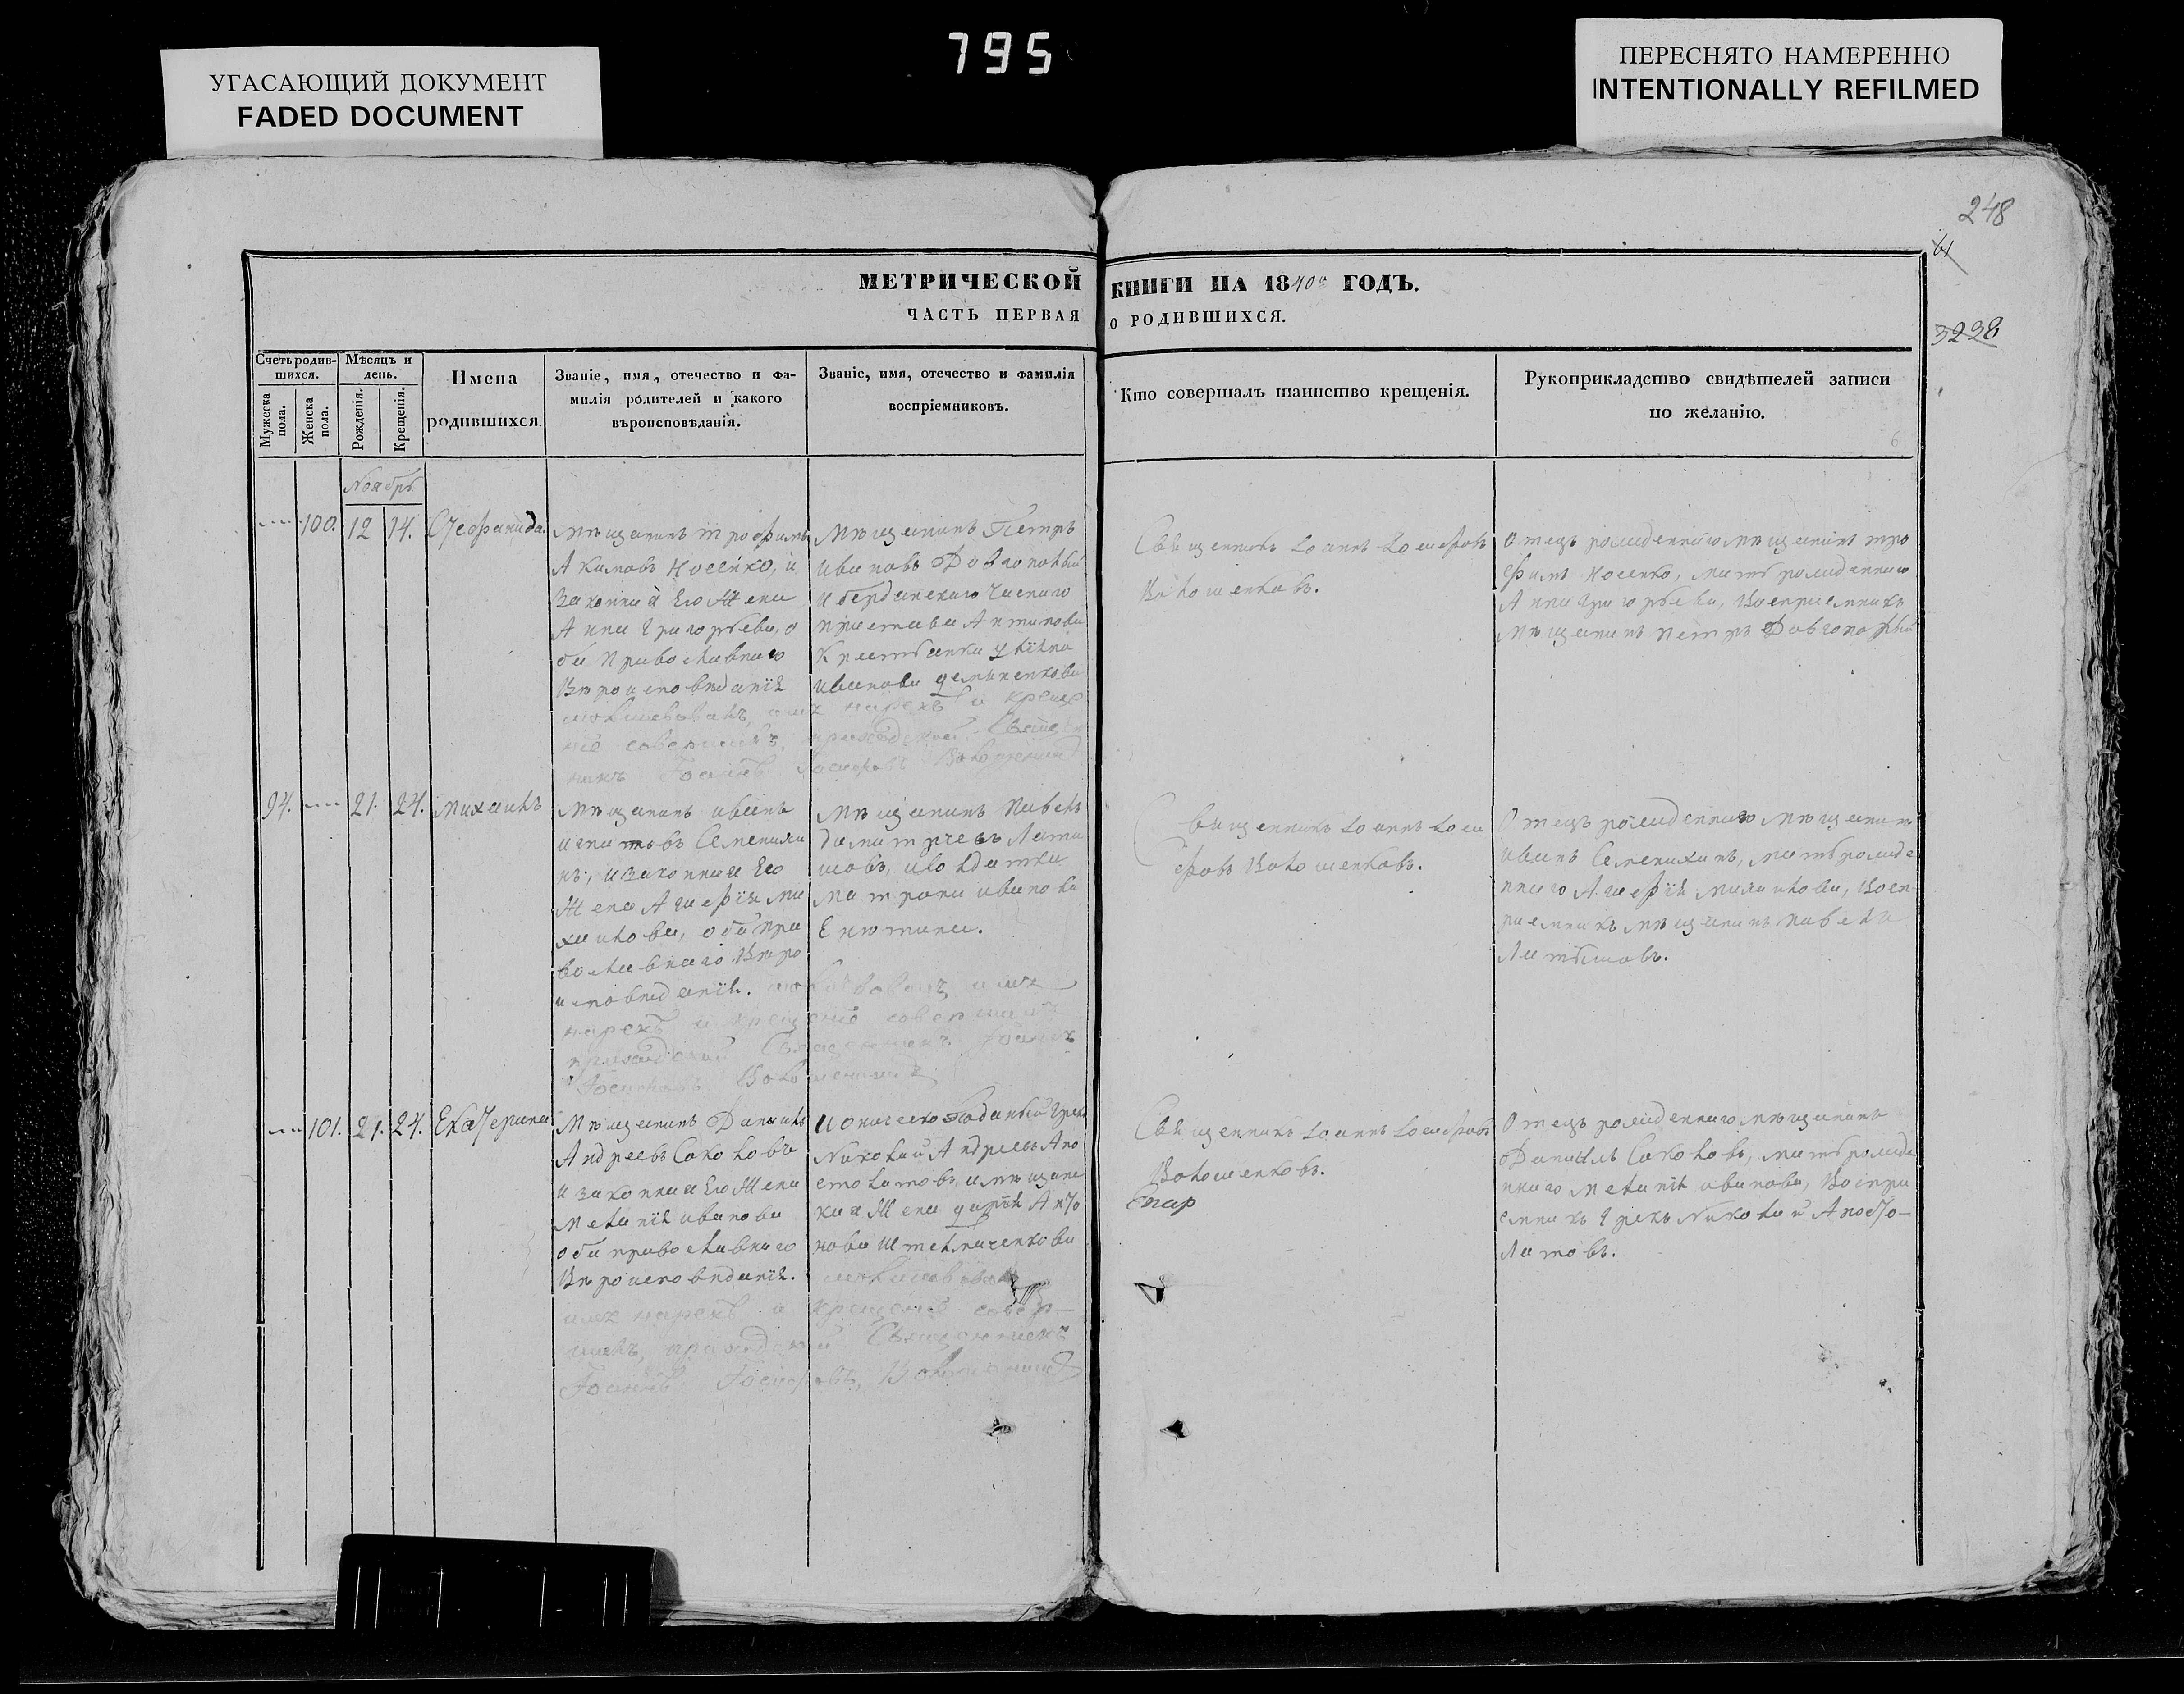 795
УГАСАЮЩИЙ ДОКУМЕНТ
FADED DOCUMENT
ПЕРЕСНЯТО НАМЕРЕННО
INTENTIONALLY REFILMED
248
61
3238
МЕТРИЧЕСКОЙ КНИГИ НА 1840й ГОДЪ.
ЧАСТЬ ПЕРВАЯ О РОДИВШИХСЯ.
Счетъ родив-
шихся.
Мужеска
пола.
Женска
пола.
Мѣсяцъ и
день.
Рожденія.
Крещенія.
Имена
родившихся.
Званіе, имя, отечество и фа-
милія родителей и какого
вѣроисповѣданія.
Званіе, имя, отечество и фамилія
воспріемниковъ.
Кто совершалъ таинство крещенія.
Рукоприкладство свидѣтелей записи
по желанію.
Ноябрь
100. 12 14. Стефанида.
Мѣщанинъ трофимъ
Акимовъ Носенко, и
Законная Его Жена
Анна Григорьева, о
ба Православнаго
Вѣроисповѣданія
Мѣщанинъ Петръ
Ивановъ Довгополый
И бердянскаго Частнаго
пристава Антипова
Крестьянка
Иванова
молитвовалъ, имя нарекъ и креще
ніе совершилъ приходской Священ
никъ Іоаннъ
Священникъ Іоаннъ Іосифовъ
Волошенковъ.
Отецъ рожденнаго мѣщанинъ тро
фимъ Носенко, мать рожденнаго
Анна Григорьева, Воспріемникъ
Мѣщанинъ Петръ Довгополый
94. 21. 24. Михаилъ
Мѣщанинъ иванъ
игнатовъ Семенихи
нъ, и законная Его
Жена Агафія Ми
хаилова, оба пра
вославнаго Вѣро
исповѣданія.
Мѣщанинъ Павелъ
Димитріевъ Лати
шовъ, и солдатка
Матрона иванова
Енютина.
молитвовалъ, имя
нарекъ и крещеніе совершилъ
приходской Священникъ Іоаннъ
Іосифовъ
Священникъ Іоаннъ Іоси
фовъ Волошенковъ.
Отецъ рожденнаго мѣщанинъ
иванъ Семенихинъ, мать рожде
ннаго Агафія Михаилова, Восп
ріемникъ мѣщанинъ павелъ
Латышовъ.
101. 21. 24. Екатерина
Мѣщанинъ Даніилъ
Андреевъ Соколовъ
и законная Его Жена
Меланія иванова
оба православнаго
Вѣроисповѣданія.
Іоническо Поданый Грекъ
Николай Андреевъ Апо
столатовъ, и мѣщанс
кая Жена дарія Анто
нова Штельмаченкова
молитвовалъ
имя нарекъ и крещеніе совер-
шилъ, приходской Священникъ
Іоаннъ
Священникъ Іоаннъ Іосифовъ
Волошенковъ.
Отецъ рожденнаго мѣщанинъ
Даніилъ Соколовъ, мать рожде
ннаго Меланія иванова, Воспрі
емникъ Грекъ Николай Апосто-
латовъ.